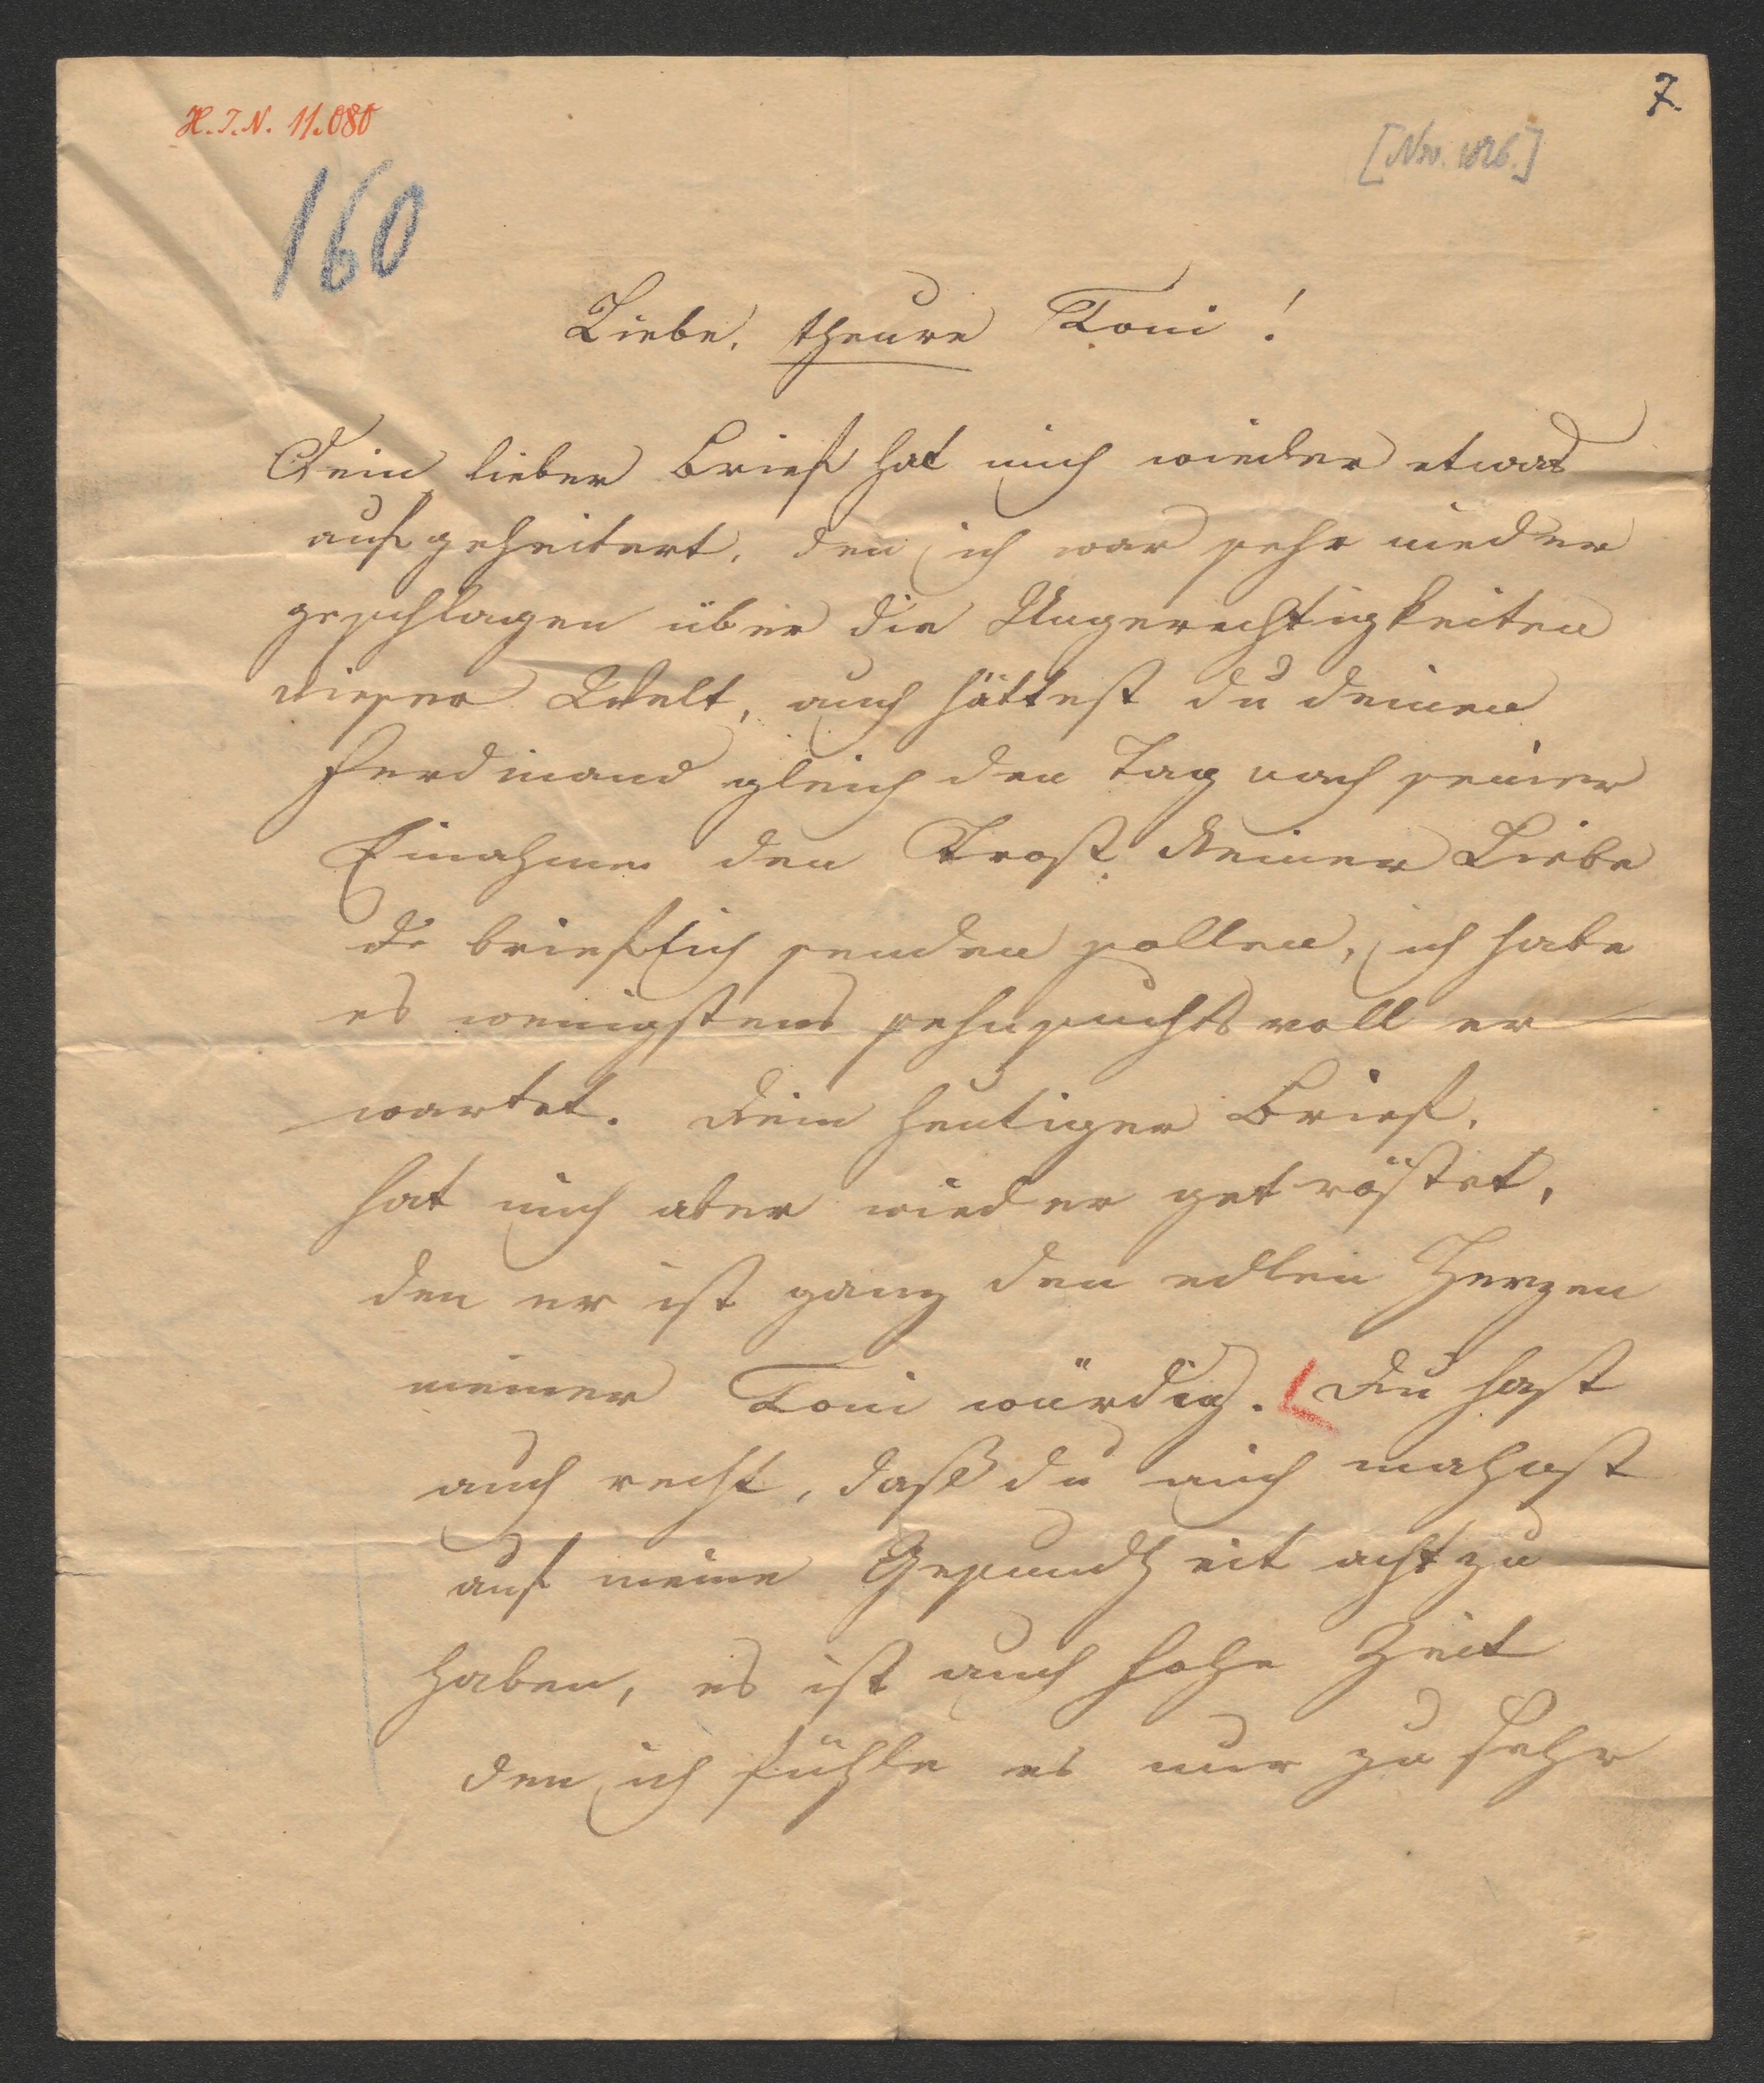 H.I.N. 11.080
7.
[Nov. 1826.]
160
Liebe, theure Toni!
Dein lieber Brief hat mich wieder etwas
aufgeheitert, den ich war sehr nieder
geschlagen über die Ungerechtigkeiten
dieser Welt, auch hättest du deinen
Ferdinand gleich den Tag nach seiner
Einahme den Trost deiner Liebe
brieflich senden sollen, ich habe
es wenigstens sehnsuchtsvoll er
wartet. Dein heutiger Brief,
hat mich aber wieder getröstet,
den er ist ganz den edlen Herzen
meiner Toni würdig. Du hast
auch recht, daß du mich mahnst
auf meine Gesundheit acht zu
haben, es ist auch hohe Zeit
den ich fühle es nur zu sehr